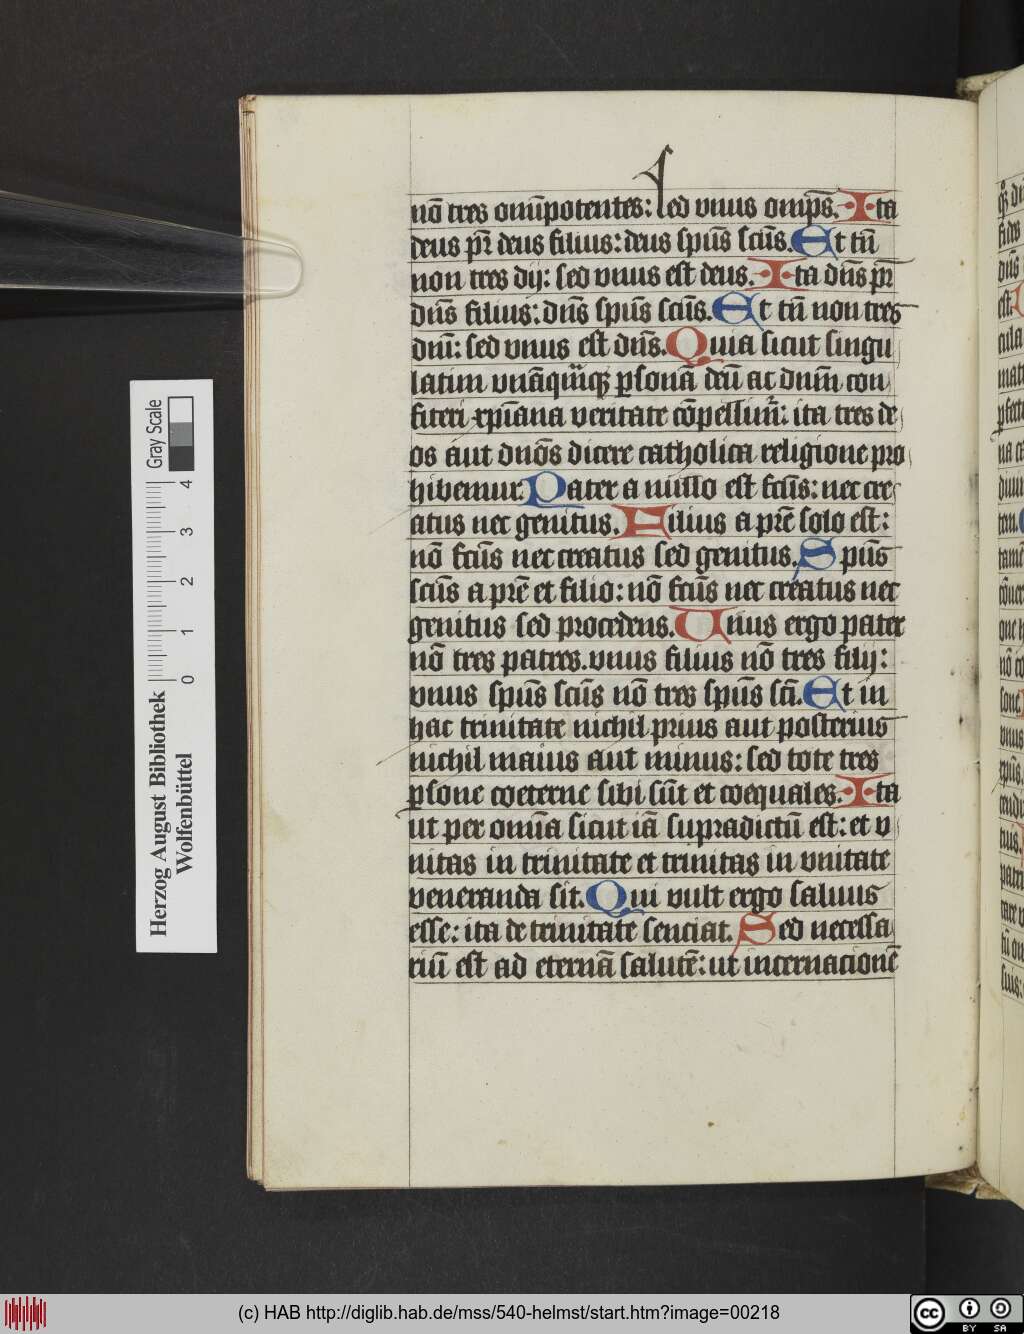 nō tres om̄ipotentes: sed vnus omp̄s. Ita
deus pr̄ deus filius: deus spūs scūs. Et tn̄
non tres dij: sed vnus est deus. Ita dn̄s pr̄
dn̄s filius: dn̄s spūs scūs. Et tn̄ non tres
dn̄i: sed vnus est dn̄s. Quia sicut singu
latim vnāquāqꝫ ꝑsonā deū ac dnm̄ con
fiteri xp̄iana veritate cōpellim̄r: ita tres de
os aut dnōs dicere catholica religione pro
hibemur. Pater a nullo est fcūs: nec cre
atus nec genitus. Filius a pr̄e solo est:
nō fcūs nec creatus sed genitus. Spūs
scūs a pr̄e et filio: nō fcūs nec creatus nec
genitus sed procedens. Unus ergo pater
nō tres patres. vnus filius nō tres filij:
vnus spūs scūs nō tres spūs scī. Et in
hac trinitate nichil prius aut posterius
nichil maius aut minus: sed tote tres
ꝑsone coeterne sibi sūt et coequales. Ita
ut per omnia sicut iā supradictū est: et v
nitas in trinitate et trinitas in vnitate
veneranda sit. Qui vult ergo saluus
esse: ita de trinitate senciat. Sed necessa
riū est ad eternā salutē: ut incernacionē
Herzog August Bibliothek
Wolfenbüttel
0 1 2 3 4
Gray Scale
(c) HAB http://diglib.hab.de/mss/540-helmst/start.htm?image=00218
cc BY SA